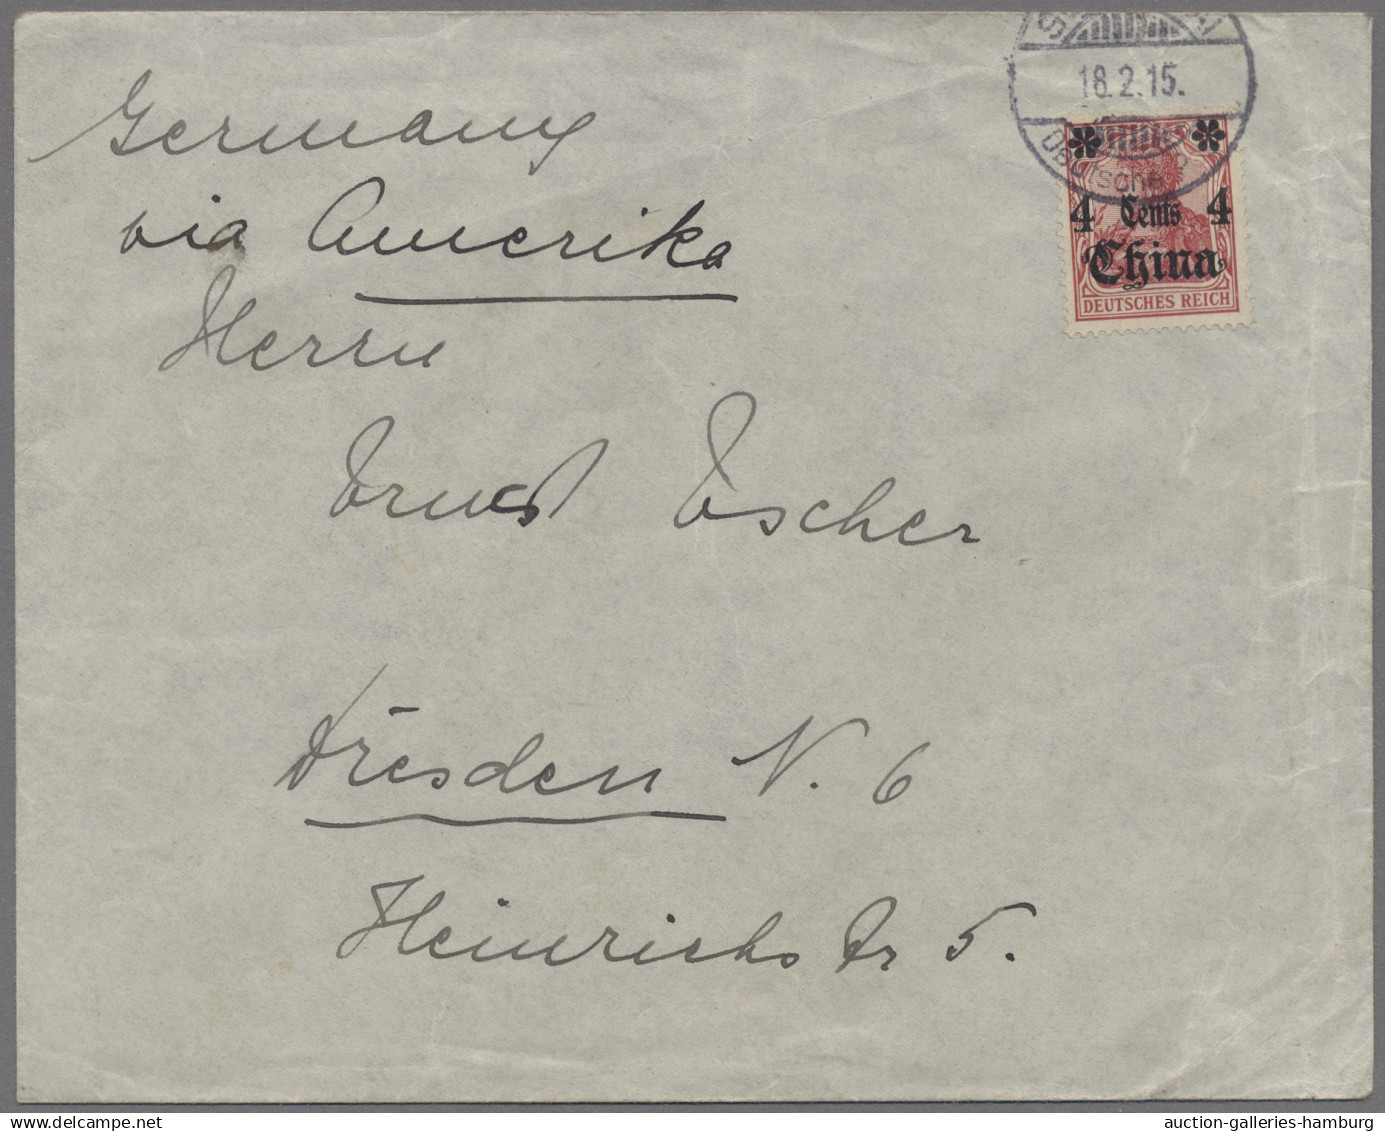 18.2.15.
Deutsche
4 Cents 4
China
DEUTSCHES REICH
Germany
via Amerika
Herrn
Ernst Escher
Dresden N. 6
Heinrichs Str 5.
auction-galleries-hamburg